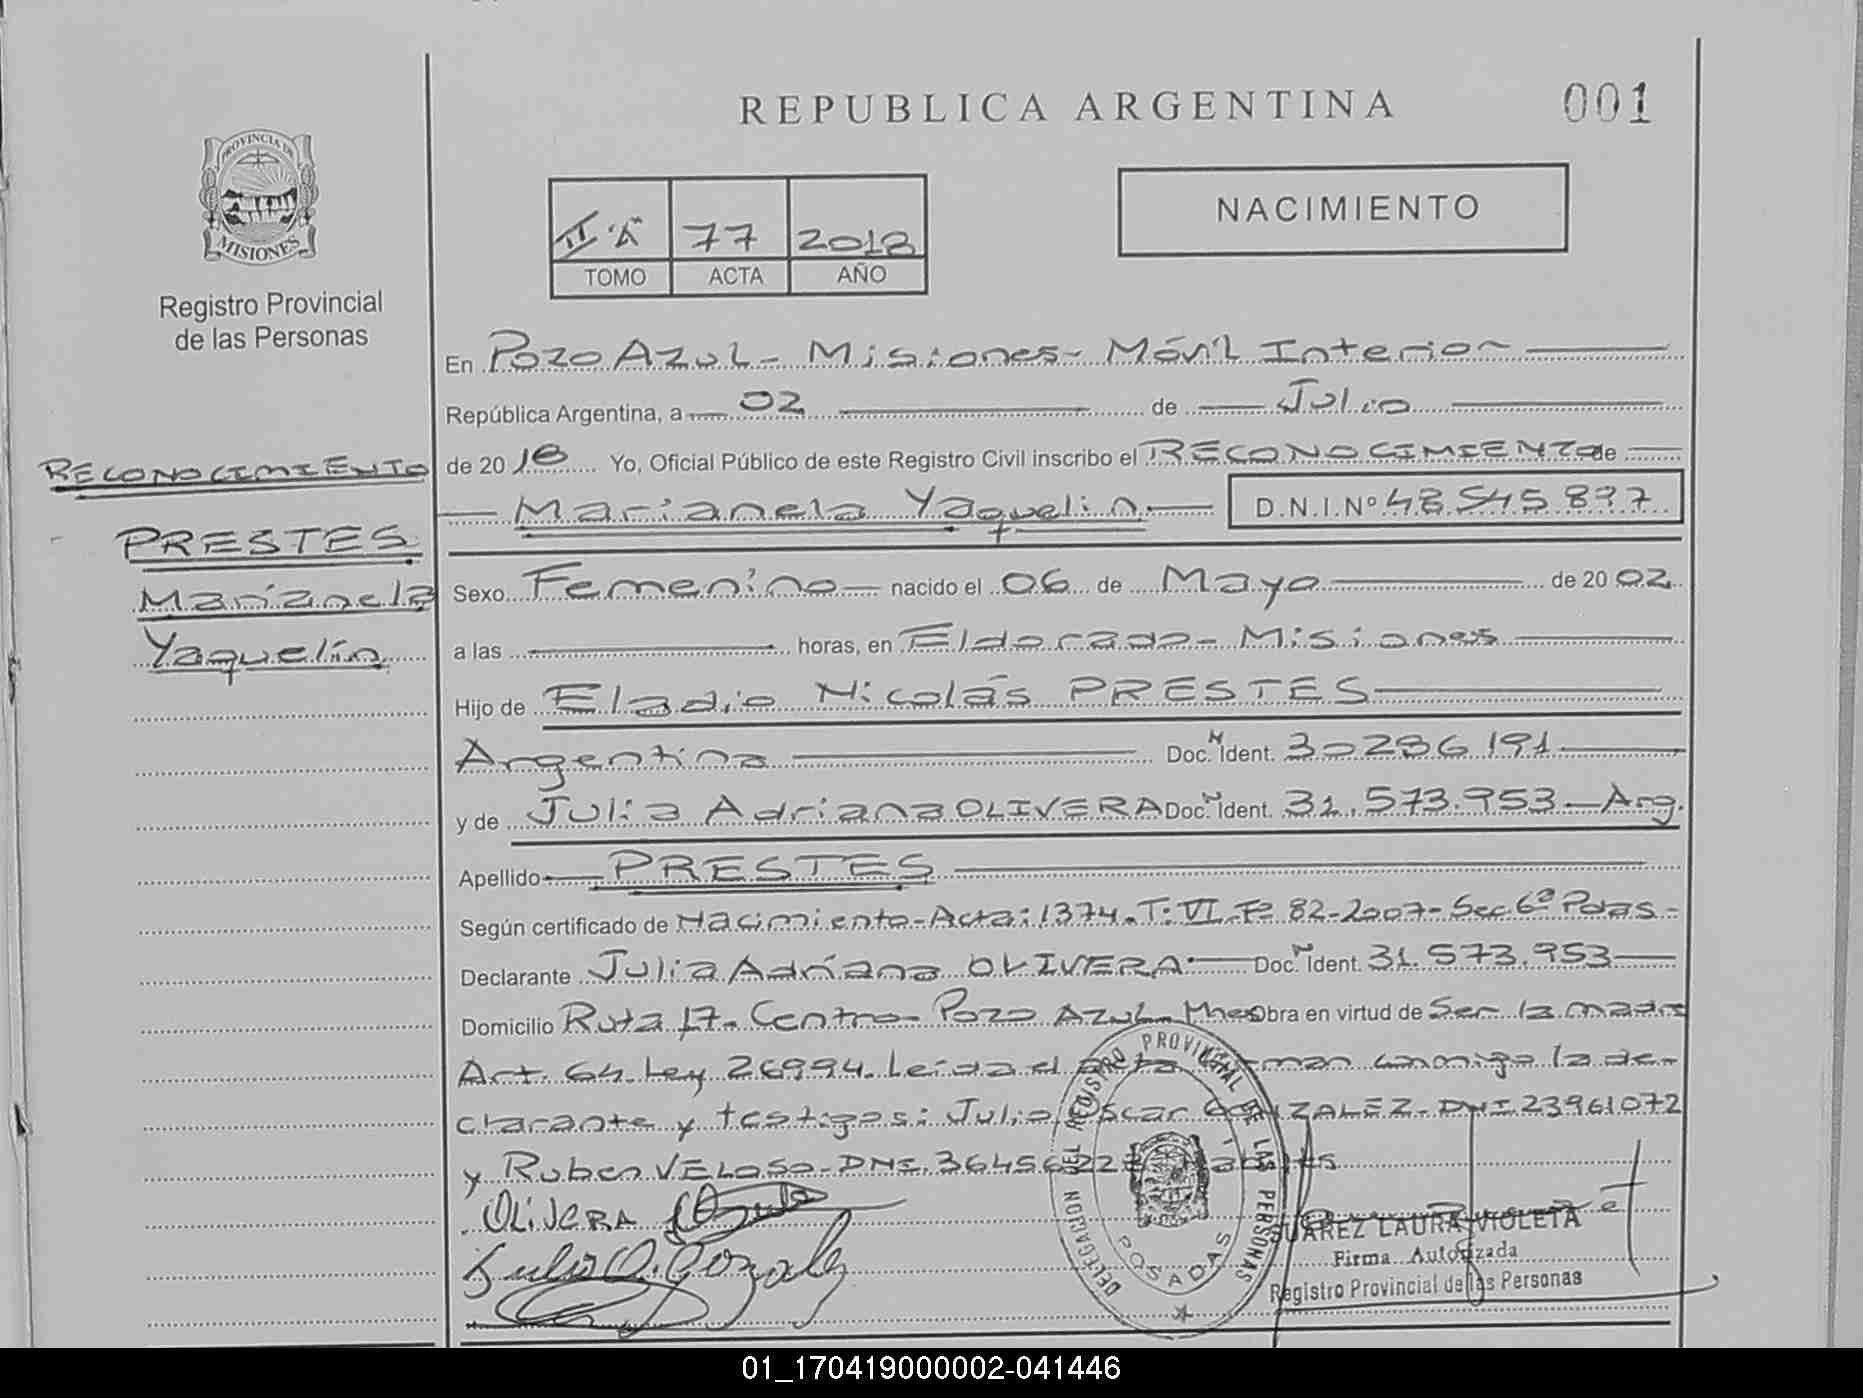 REPUBLICA ARGENTINA
001
PROVINCIA DE
MISIONES
Registro Provincial
de las Personas
II "A" 77 2018
TOMO ACTA AÑO
NACIMIENTO
En Pozo Azul - Misiones - Móvil Interior
República Argentina, a 02 de Julio
de 2018 Yo, Oficial Público de este Registro Civil inscribo el RECONOCIMIENTO de
Marianela Yaquelin D.N.I.Nº 48.545.897
RECONOCIMIENTO
PRESTES
Marianela
Yaquelín
Sexo Femenino nacido el 06 de Mayo de 20 02
a las horas, en Eldorado - Misiones
Hijo de Eladio Nicolás PRESTES
Argentina Doc. N Ident. 30.286.191
y de Julia Adriana OLIVERA Doc. N Ident. 31.573.953 - Arg.
Apellido PRESTES
Según certificado de Nacimiento - Acta: 1374. T: VI - Fº 82 - 2007 - Sec 6ª Pdas -
Declarante Julia Adriana OLIVERA - Doc. N Ident. 31.573.953
Domicilio Ruta 17 - Centro - Pozo Azul - Mnes Obra en virtud de Ser la madre
Art. 64. Ley 26994. Leída el acta firman conmigo la de-
clarante y testigos: Julio Oscar GONZALEZ - DNI 23961072
y Ruben VELOSO - DNI.
OLIVERA
Julio O. Gozalez
DELEGACION DEL REGISTRO PROVINCIAL DE LAS PERSONAS
POSADAS
SUAREZ LAURA VIOLETA
Firma Autorizada
Registro Provincial de las Personas
01_170419000002-041446